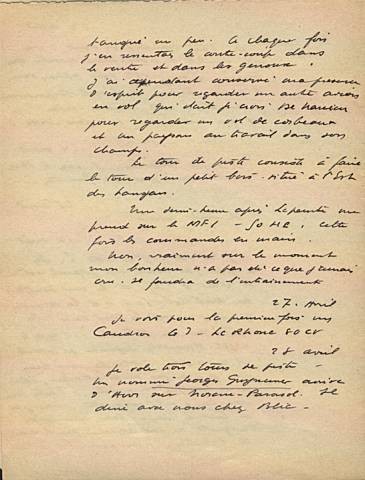 tangué un peu. A chaque fois
j'en ressentais le contre-coup dans
le ventre et dans les genoux.
J'ai cependant conservé ma présence
d'esprit pour regarder un autre avion
en vol qui était je crois de
pour regarder un vol de corbeaux
et un paysan au travail dans son
champ.
Le tour de piste consiste à faire
le tour d'un petit bois situé à l'Est
des hangars.
Une demi-heure après Lepointe me
prend sur le MF1 - 50 HR, cette
fois les commandes en mains.
Non, vraiment sur le moment
mon bonheur n'a pas été ce que j'aurais
cru. Il faudra de l'entraînement
27. Avril
Je vois pour la première fois un
Caudron G3 - Le Rhone 80 CV
28 avril
Je vole trois tours de piste -
Un nommé Georges arrive
d' sur Morane-Parasol. Il
dine avec nous chez